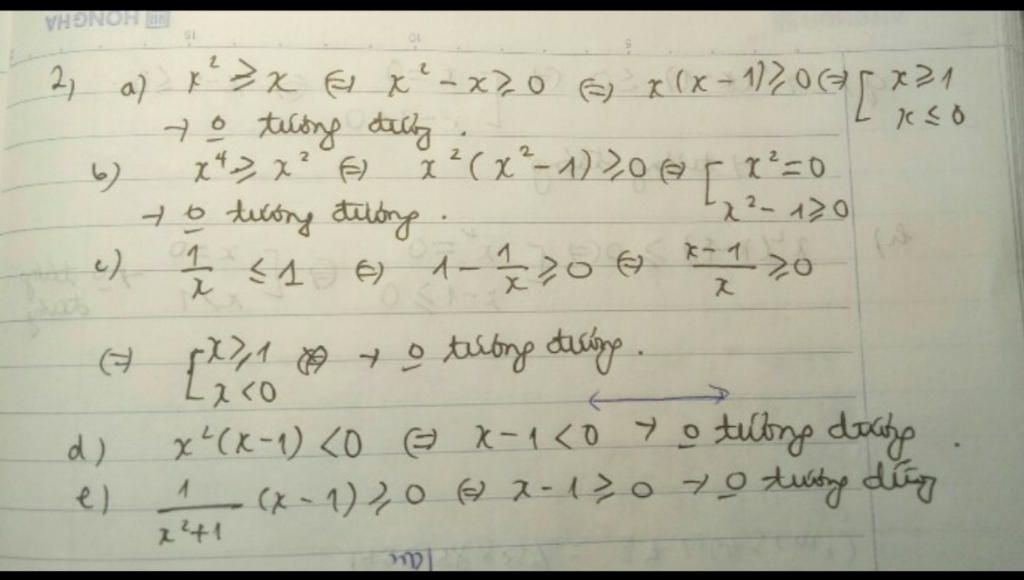 VHƏNOH
15 10 5
2, a) x² ≥ x ⇔ x² - x ≥ 0 ⇔ x(x - 1) ≥ 0 ⇔ [ x ≥ 1
x ≤ 0
→ o tương đương.
b) x⁴ ≥ x² ⇔ x²(x² - 1) ≥ 0 ⇔ [ x² = 0
x² - 1 ≥ 0
→ o tương đương.
c) 1/x ≤ 1 ⇔ 1 - 1/x ≥ 0 ⇔ (x - 1)/x ≥ 0
⇔ [ x ≥ 1 → o tương đương.
x < 0
d) x²(x - 1) < 0 ⇔ x - 1 < 0 → o tương đương.
e) 1/(x² + 1) (x - 1) ≥ 0 ⇔ x - 1 ≥ 0 → o tương đương